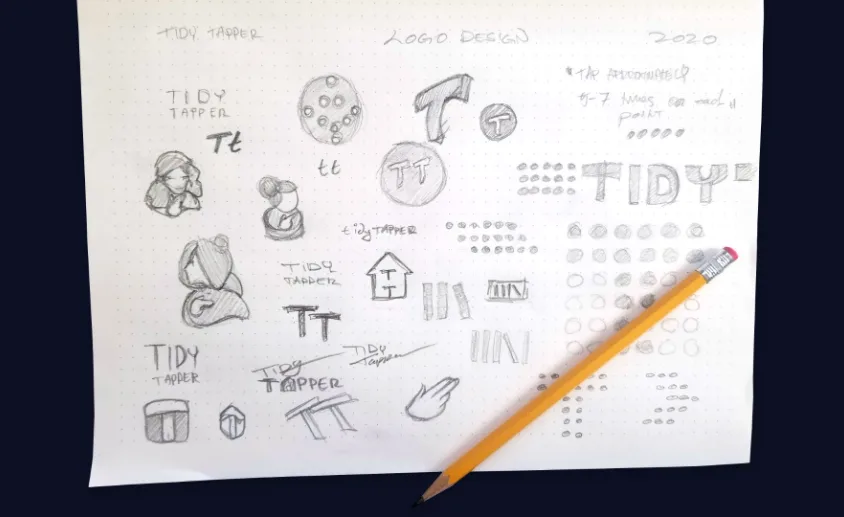 TIDY TAPPER
LOGO DESIGN
2020
TIDY
TAPPER
Tt
T
T
tt
TT
* TAP
5-7 times on each
point
TIDY
tidyTAPPER
TIDY
TAPPER
T
T
TT
TIDY
TAPPER
TIDY
TAPPER
TIDY
Tapper
T
TT